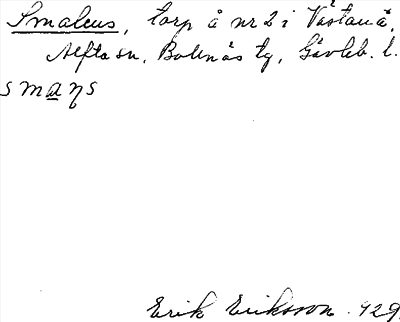 Smaleus, torp å nr 2 i Västanå,
Alfta sn, Bollnäs tg, Gävleb. l.
smaŋs
Erik Eriksson. 929.